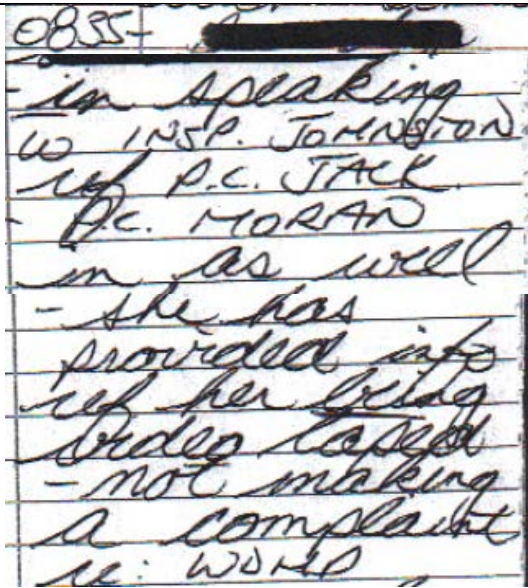 0835-
- in speaking
w INSP. JOHNSTON
ref P.C. JACK
- P.C. MORAN
in as well
- she has
provided info
ref her being
video taped
- not making
a complaint
re: WDHP